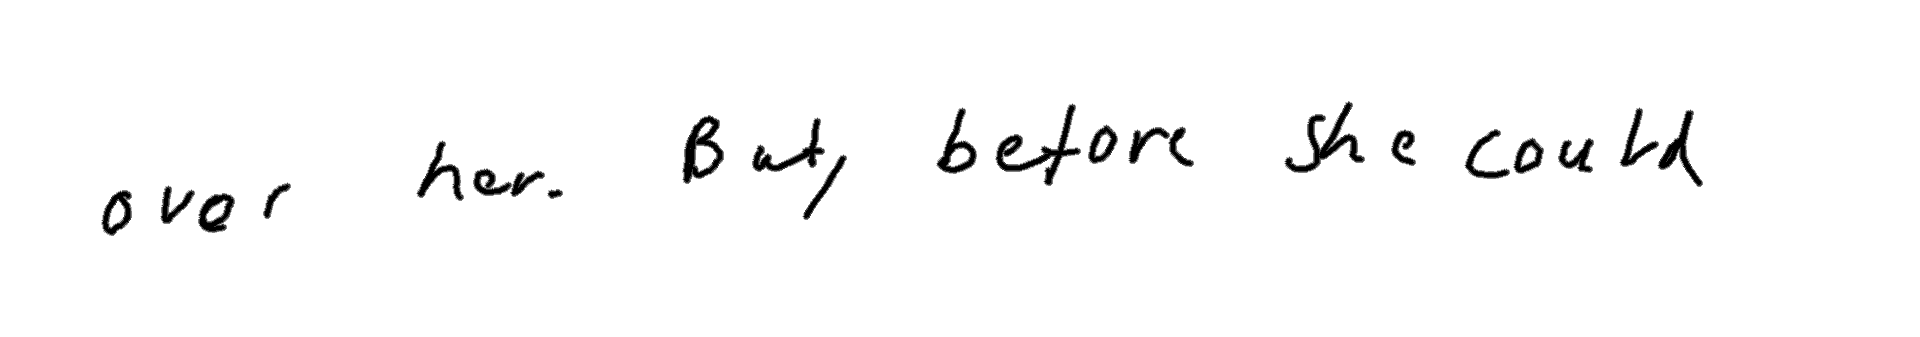 over her. But, before she could